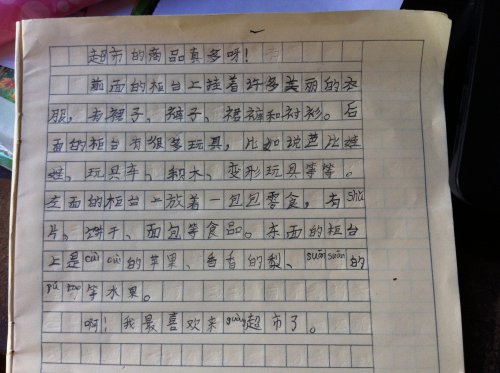 超市的商品真多呀!
前面的柜台上挂着许多美丽的衣
服，有裙子、裤子、裙裤和衬衫。后
面的柜台有很多玩具，比如说芭比娃
娃、玩具车、积木、变形玩具等等。
左面的柜台上放着一包包零食，有shǔ
片、饼干、面包等食品。东面的柜台
上是cuì cuì的苹果、香香的梨、suān suān的
等水果。
啊!我最喜欢来guàng超市了。